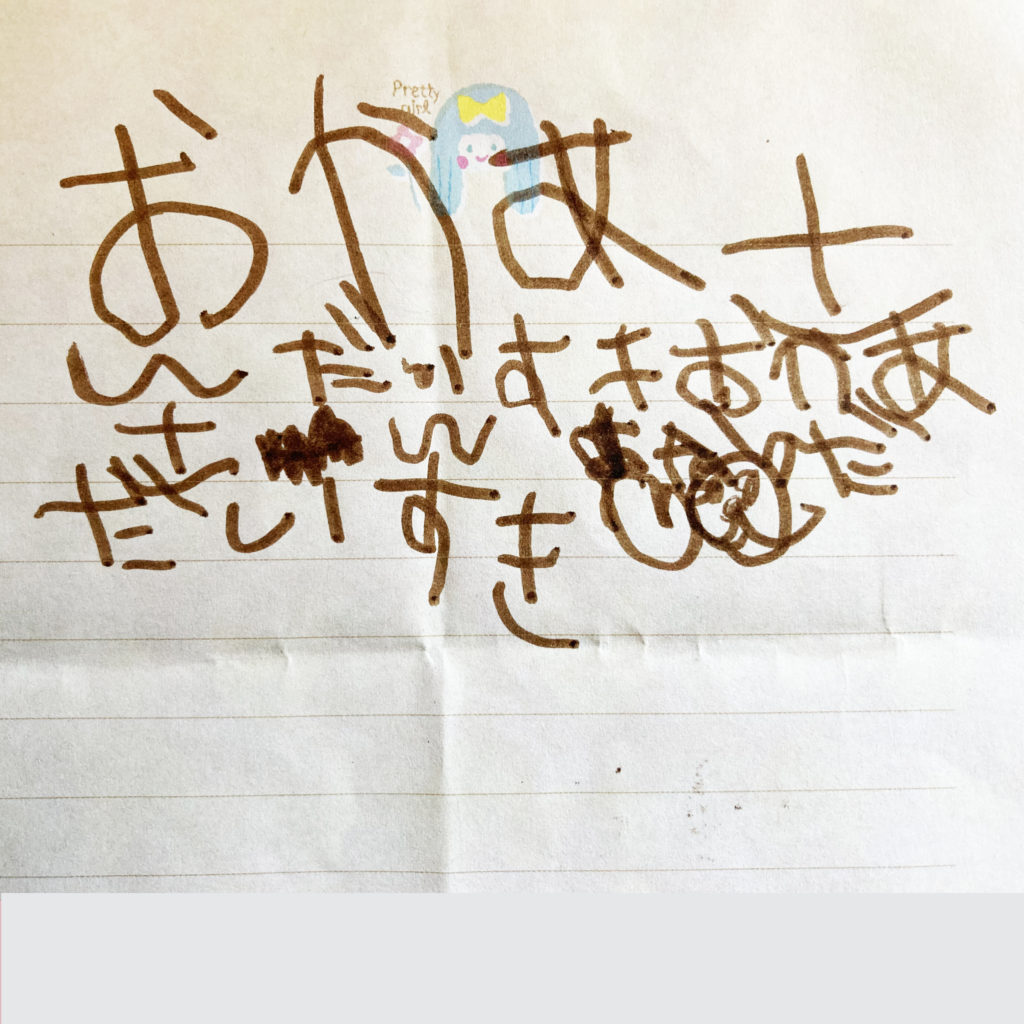 Pretty
girl
おかあさ
んだいすきおかあ
さん だ
だいすき